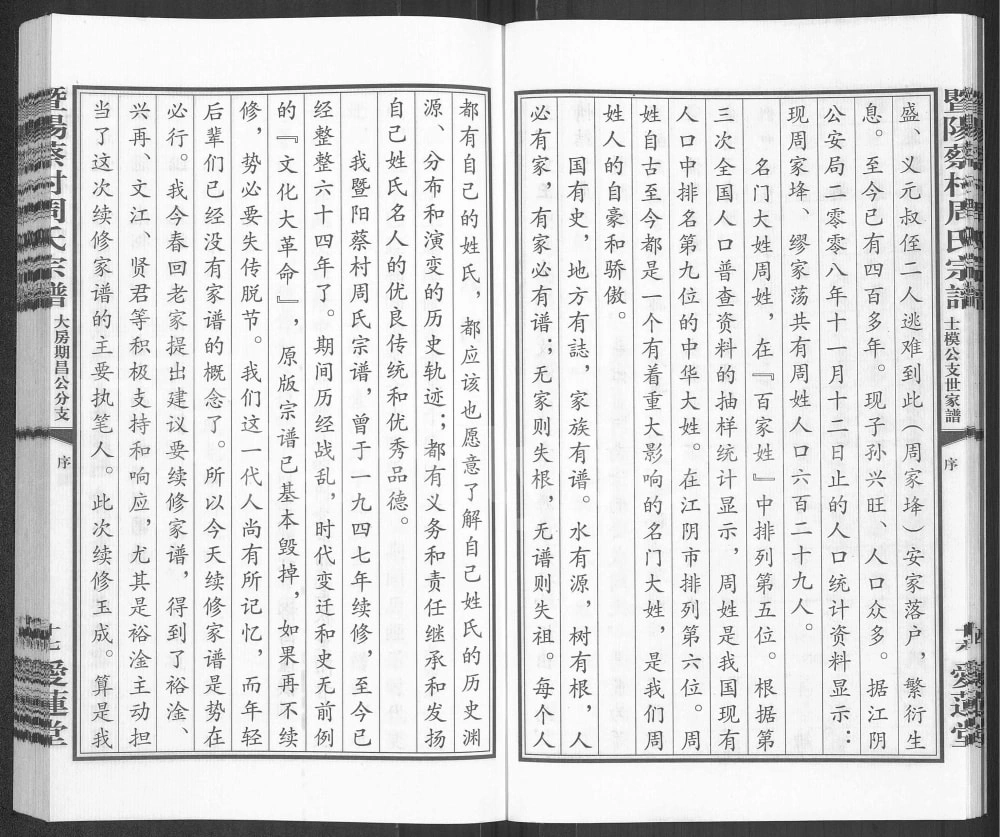 暨陽蔡村周氏宗譜
士模公支世家譜
序
愛蓮堂
盛、义元叔侄二人逃难到此（周家埄）安家落户，繁衍生
息。至今已有四百多年。现子孙兴旺、人口众多。据江阴
公安局二零零八年十一月十二日止的人口统计资料显示：
现周家埄、缪家荡共有周姓人口六百二十九人。
名门大姓周姓，在『百家姓』中排列第五位。根据第
三次全国人口普查资料的抽样统计显示，周姓是我国现有
人口中排名第九位的中华大姓。在江阴市排列第六位。周
姓自古至今都是一个有着重大影响的名门大姓，是我们周
姓人的自豪和骄傲。
国有史，地方有誌，家族有谱。水有源，树有根，人
必有家，有家必有谱；无家则失根，无谱则失祖。每个人
都有自己的姓氏，都应该也愿意了解自己姓氏的历史渊
源、分布和演变的历史轨迹；都有义务和责任继承和发扬
自己姓氏名人的优良传统和优秀品德。
我暨阳蔡村周氏宗谱，曾于一九四七年续修，至今已
经整整六十四年了。期间历经战乱，时代变迁和史无前例
的『文化大革命』，原版宗谱已基本毁掉，如果再不续
修，势必要失传脱节。我们这一代人尚有所记忆，而年轻
后辈们已经没有家谱的概念了。所以今天续修家谱是势在
必行。我今春回老家提出建议要续修家谱，得到了裕淦、
兴再、文江、贤君等积极支持和响应，尤其是裕淦主动担
当了这次续修家谱的主要执笔人。此次续修玉成。算是我
暨陽蔡村周氏宗譜
大房期昌公分支
序
愛蓮堂